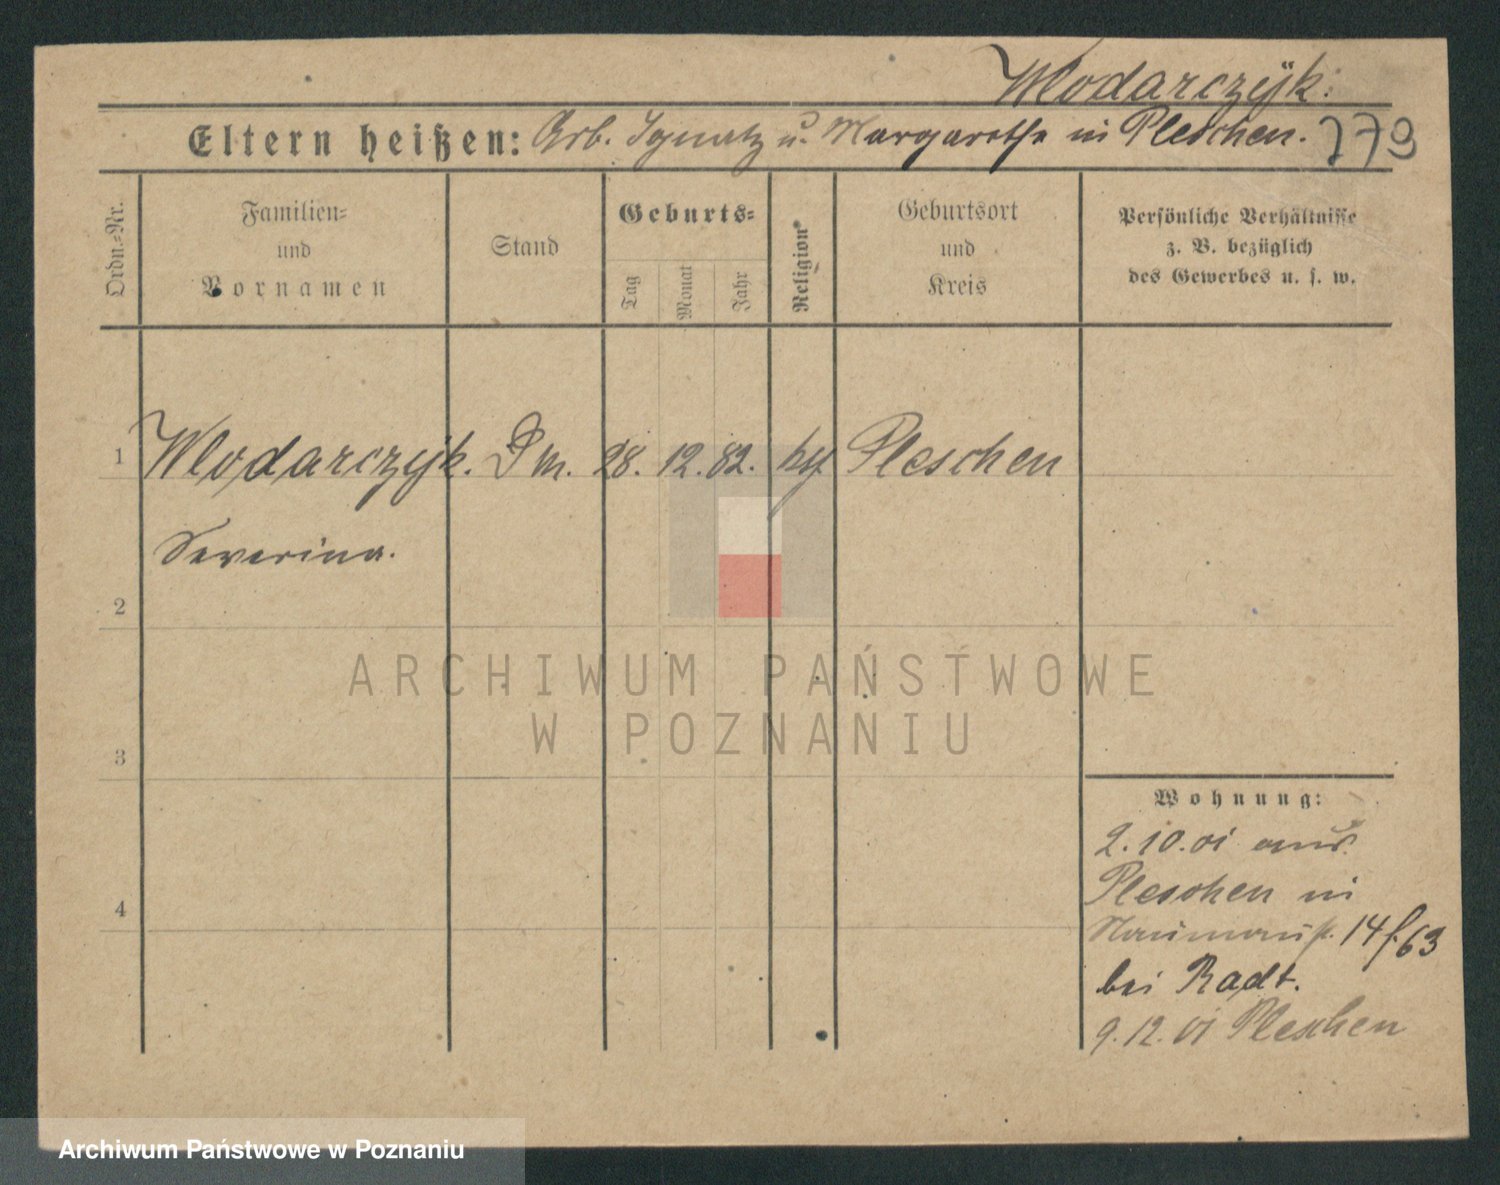 Wlodarczÿk.
Eltern heißen: Arb. Ignatz u. Margarethe in Pleschen. 779
Ordn.-Nr.
Familien-
und
Vornamen
Stand
Geburts-
Tag
Monat
Jahr
Religion
Geburtsort
und
Kreis
Persönliche Verhältnisse
z. B. bezüglich
des Gewerbes u. s. w.
1 Wlodarczÿk. Dm. 28. 12. 82. Pleschen
Severina.
2
ARCHIWUM PAŃSTWOWE
W POZNANIU
3
Wohnung:
2.10.01 aus
Pleschen in
4
Naumannst. 14
bei Radt.
9.12.01 Pleschen
Archiwum Państwowe w Poznaniu